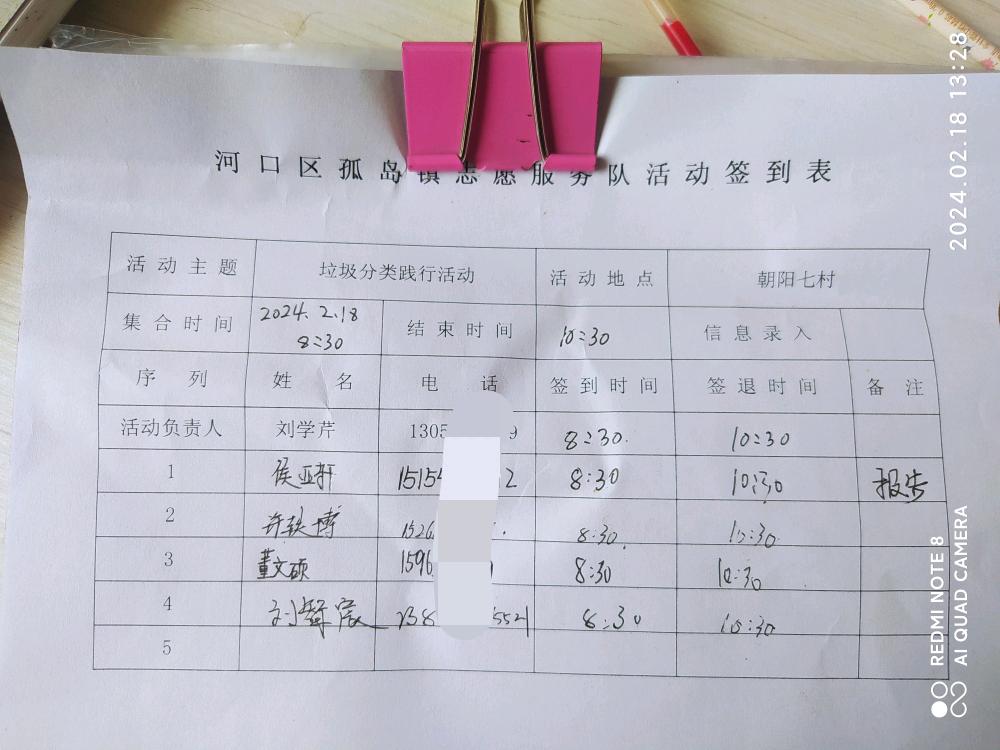 河口区孤岛镇志愿服务队活动签到表
活动主题 垃圾分类践行活动 活动地点 朝阳七村
集合时间 2024.2.18 8:30 结束时间 10:30 信息录入
序列 姓名 电话 签到时间 签退时间 备注
活动负责人 刘学芹 1305 9 8:30. 10:30
1 侯亚轩 15154 2 8:30 10:30 报告
2 许轶博 1526 8:30. 10:30
3 董文硕 1596 8:30 10:30
4 刘 宸 138 5521 8:30 10:30
5
2024.02.18 13:28
REDMI NOTE 8
AI QUAD CAMERA